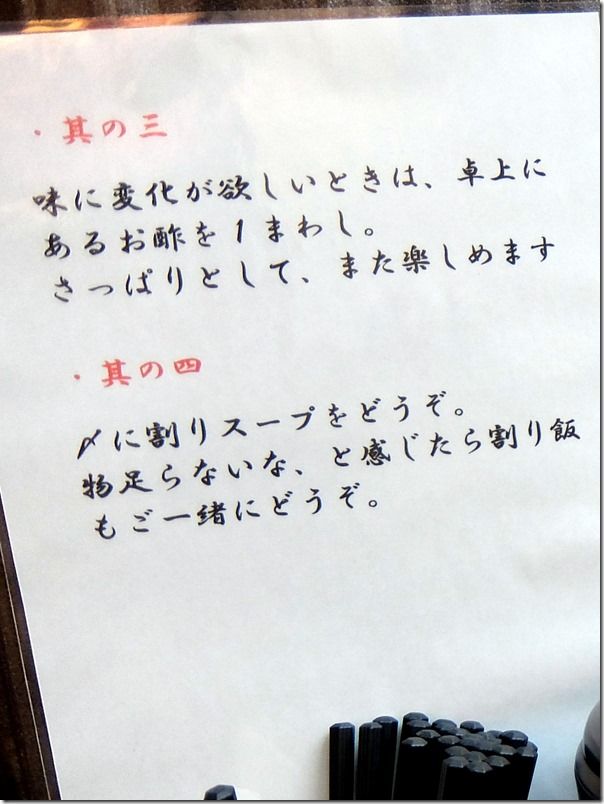 ・其の三
味に変化が欲しいときは、卓上に
あるお酢を1まわし。
さっぱりとして、また楽しめます
・其の四
〆に割りスープをどうぞ。
物足らないな、と感じたら割り飯
もご一緒にどうぞ。